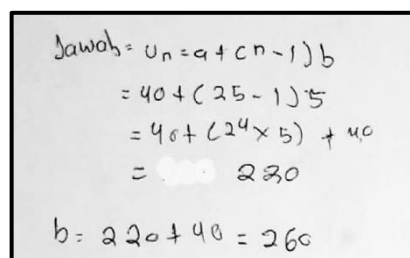 Jawab = Un = a + (n - 1) b
= 40 + (25 - 1) 5
= 40 + (24 x 5) + 40
= 220
b = 220 + 40 = 260